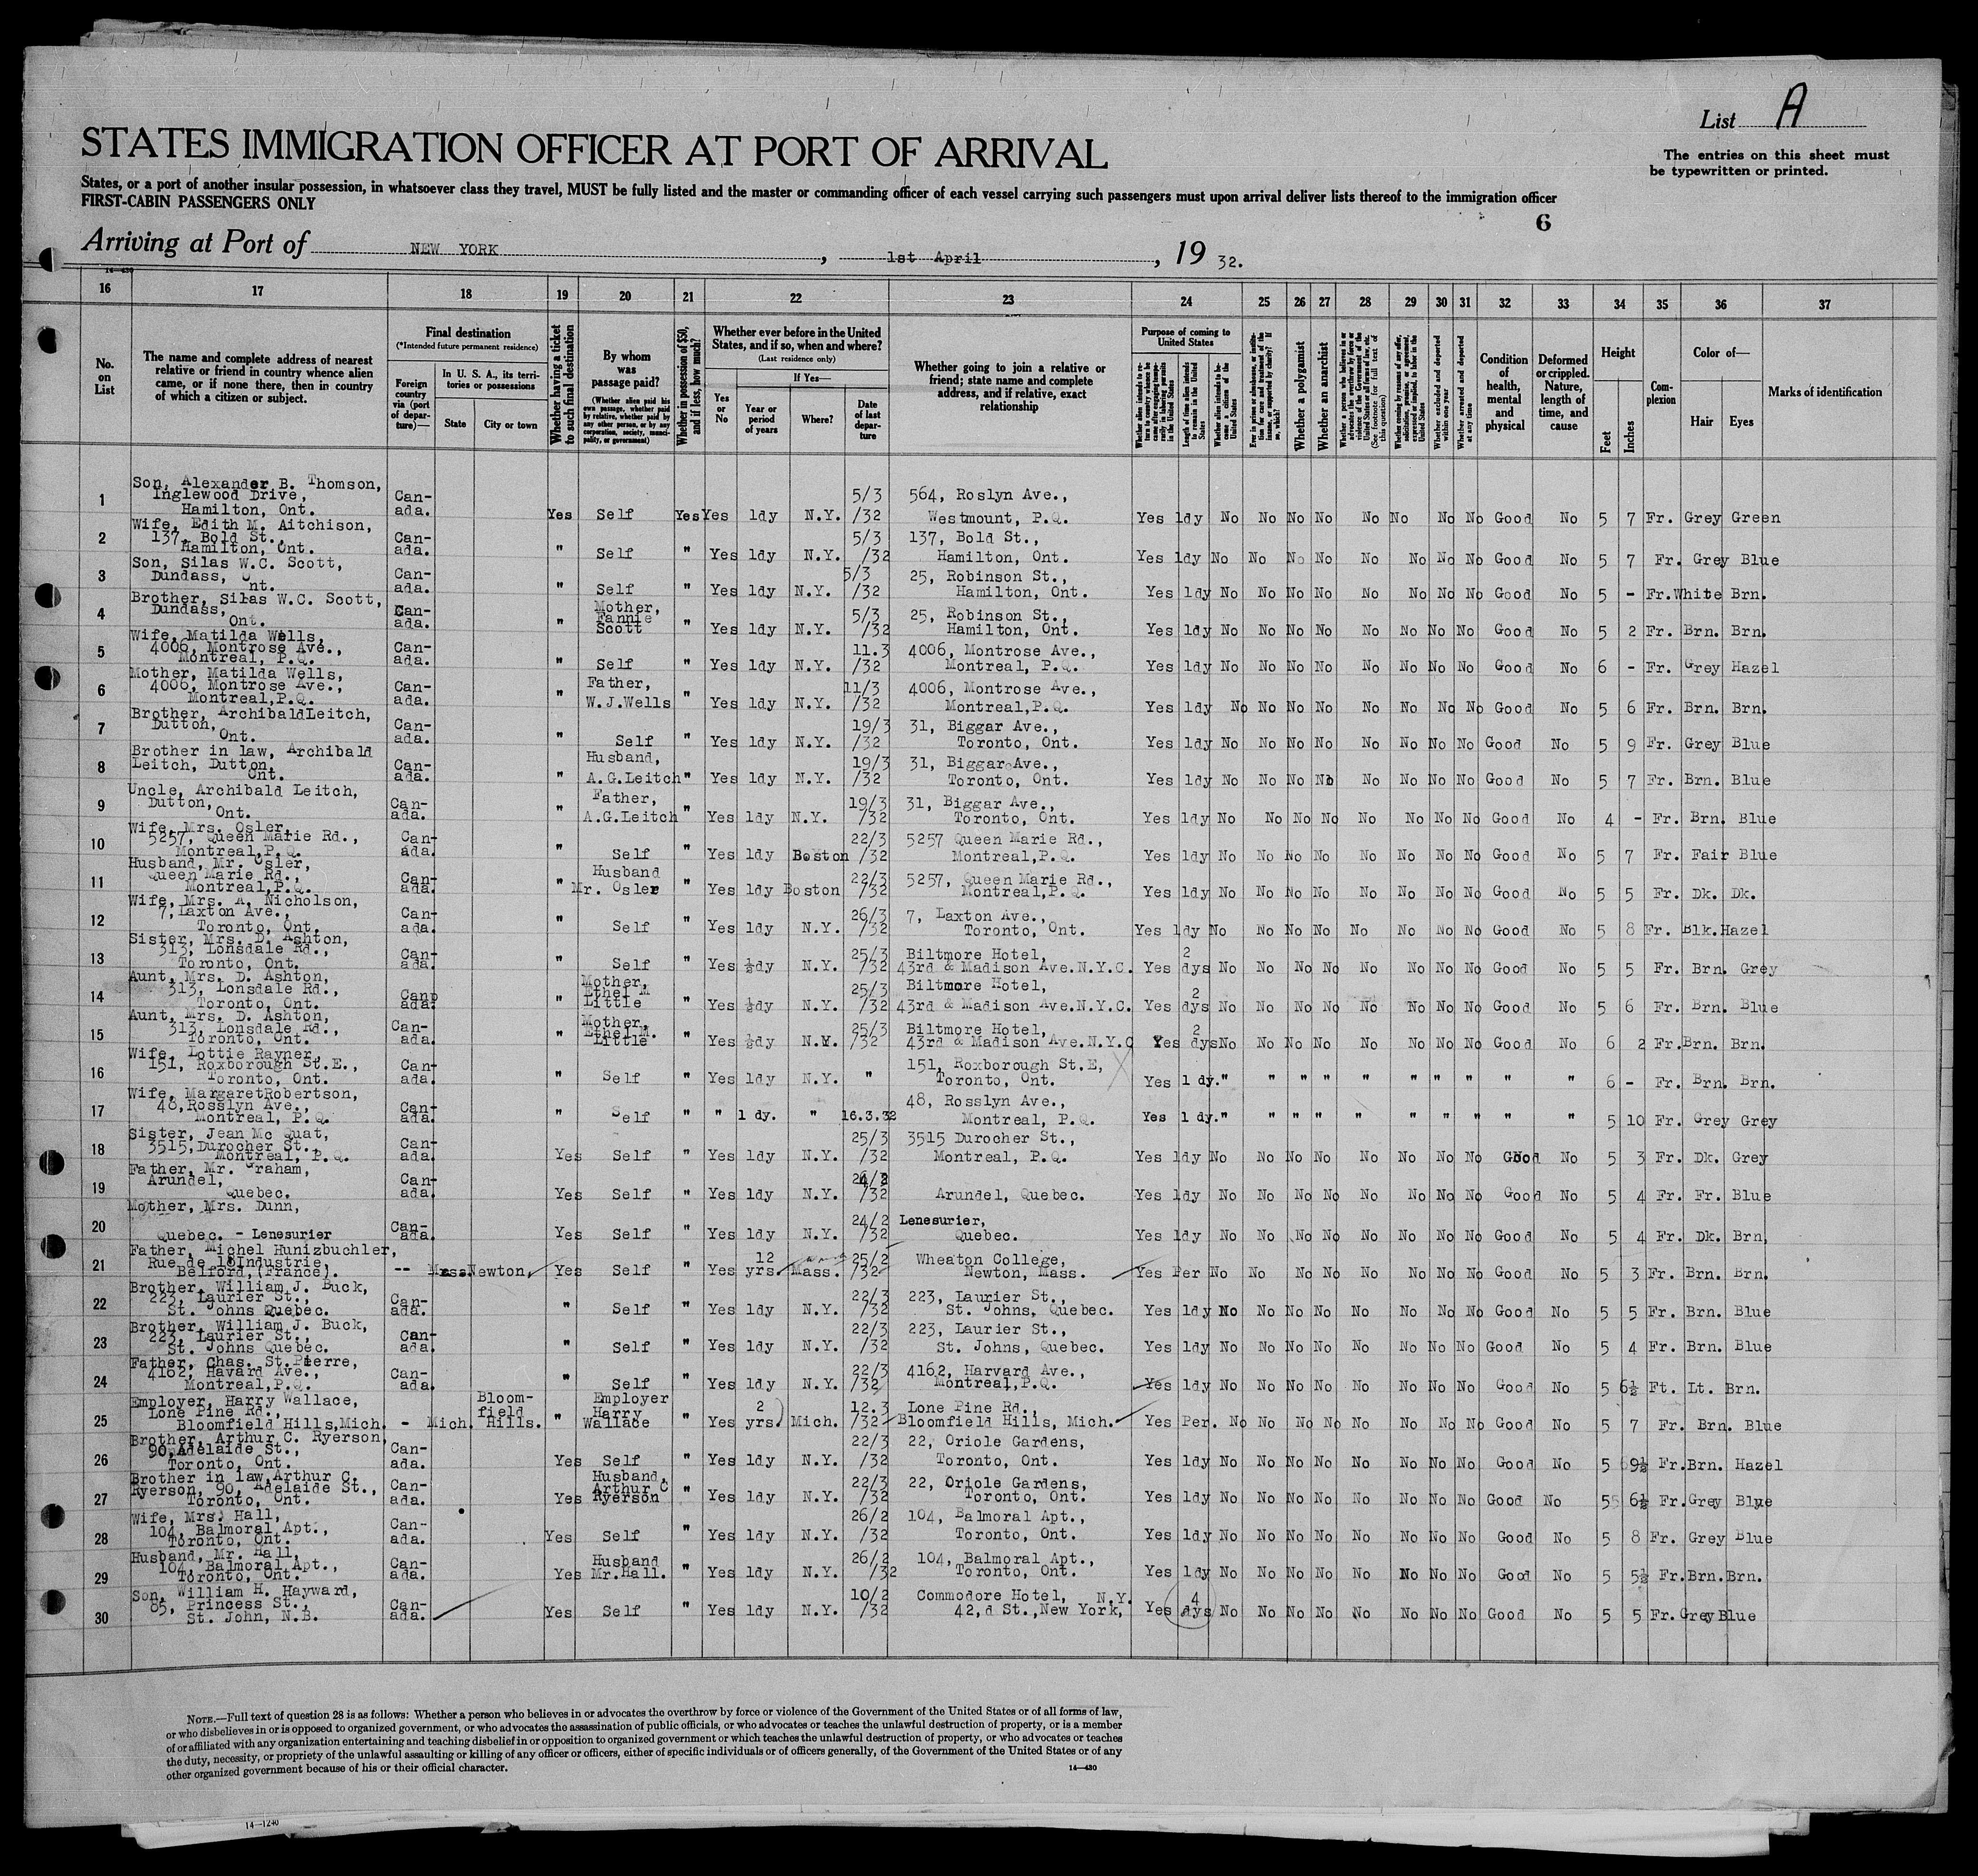 List A
STATES IMMIGRATION OFFICER AT PORT OF ARRIVAL
The entries on this sheet must
be typewritten or printed.
States, or a port of another insular possession, in whatsoever class they travel, MUST be fully listed and the master or commanding officer of each vessel carrying such passengers must upon arrival deliver lists thereof to the immigration officer
FIRST-CABIN PASSENGERS ONLY
6
Arriving at Port of NEW YORK, 1st April, 19 32.
14—430
16 17 18 19 20 21 22 23 24 25 26 27 28 29 30 31 32 33 34 35 36 37
No. on List
The name and complete address of nearest relative or friend in country whence alien came, or if none there, then in country of which a citizen or subject.
Final destination
(*Intended future permanent residence)
Foreign country via (port of departure)—
In U. S. A., its territories or possessions
State
City or town
Whether having a ticket to such final destination
By whom was passage paid?
(Whether alien paid his own passage, whether paid by relative, whether paid by any other person, or by any corporation, society, municipality, or government)
Whether in possession of $50, and if less, how much?
Whether ever before in the United States, and if so, when and where?
(Last residence only)
Yes or No
If Yes—
Year or period of years
Where?
Date of last departure
Whether going to join a relative or friend; state name and complete address, and if relative, exact relationship
Purpose of coming to United States
Length of time alien intends to remain in the United States
Whether alien intends to become a citizen of the United States
Whether a polygamist
Whether an anarchist
Whether excluded and deported within one year
Whether arrested and deported at any time
Condition of health, mental and physical
Deformed or crippled. Nature, length of time, and cause
Height
Feet
Inches
Complexion
Color of—
Hair
Eyes
Marks of identification
1 Son, Alexander B. Thomson, Inglewood Drive, Hamilton, Ont. Canada. Yes Self Yes Yes 1dy N.Y. 5/3/32 564, Roslyn Ave., Westmount, P.Q. Yes 1dy No No No No No No No No Good No 5 7 Fr. Grey Green
2 Wife, Edith M. Aitchison, 137, Bold St., Hamilton, Ont. Canada. " Self " Yes 1dy N.Y. 5/3/32 137, Bold St., Hamilton, Ont. Yes 1dy No No No No No No No No Good No 5 7 Fr. Grey Blue
3 Son, Silas W.C. Scott, Dundass, Ont. Canada. " Self " Yes 1dy N.Y. 5/3/32 25, Robinson St., Hamilton, Ont. Yes 1dy No No No No No No No No Good No 5 - Fr. White Brn.
4 Brother, Silas W.C. Scott, Dundass, Ont. Canada. " Mother, Fannie Scott " Yes 1dy N.Y. 5/3/32 25, Robinson St., Hamilton, Ont. Yes 1dy No No No No No No No No Good No 5 2 Fr. Brn. Brn.
5 Wife, Matilda Wells, 4006, Montrose Ave., Montreal, P.Q. Canada. " Self " Yes 1dy N.Y. 11.3/32 4006, Montrose Ave., Montreal, P.Q. Yes 1dy No No No No No No No No Good No 6 - Fr. Grey Hazel
6 Mother, Matilda Wells, 4006, Montrose Ave., Montreal,P.Q. Canada. " Father, W.J.Wells " Yes 1dy N.Y. 11/3/32 4006, Montrose Ave., Montreal,P.Q. Yes 1dy No No No No No No No No Good No 5 6 Fr. Brn. Brn.
7 Brother, ArchibaldLeitch, Dutton, Ont. Canada. " Self " Yes 1dy N.Y. 19/3/32 31, Biggar Ave., Toronto, Ont. Yes 1dy No No No No No No No No Good No 5 9 Fr. Grey Blue
8 Brother in law, Archibald Leitch, Dutton, Ont. Canada. " Husband, A.G.Leitch " Yes 1dy N.Y. 19/3/32 31, Biggar Ave., Toronto, Ont. Yes 1dy No No No No No No No No Good No 5 7 Fr. Brn. Blue
9 Uncle, Archibald Leitch, Dutton, Ont. Canada. " Father, A.G.Leitch " Yes 1dy N.Y. 19/3/32 31, Biggar Ave., Toronto, Ont. Yes 1dy No No No No No No No No Good No 4 - Fr. Brn. Blue
10 Wife, Mrs. Osler, 5257, Queen Marie Rd., Montreal,P.Q. Canada. " Self " Yes 1dy Boston 22/3/32 5257 Queen Marie Rd., Montreal,P.Q. Yes 1dy No No No No No No No No Good No 5 7 Fr. Fair Blue
11 Husband, Mr. Osler, Queen Marie Rd., Montreal,P.Q. Canada. " Husband Mr. Osler " Yes 1dy Boston 22/3/32 5257, Queen Marie Rd., Montreal,P.Q. Yes 1dy No No No No No No No No Good No 5 5 Fr. Dk. Dk.
12 Wife, Mrs. A. Nicholson, 7,Laxton Ave., Toronto, Ont. Canada. " Self " Yes 1dy N.Y. 26/3/32 7, Laxton Ave., Toronto, Ont. Yes 1dy No No No No No No No No Good No 5 8 Fr. Blk. Hazel
13 Sister, Mrs. D. Ashton, 313, Lonsdale Rd., Toronto, Ont. Canada. " Self " Yes ½dy N.Y. 25/3/32 Biltmore Hotel, 43rd & Madison Ave.N.Y.C. Yes 2 dys No No No No No No No No Good No 5 5 Fr. Brn. Grey
14 Aunt, Mrs. D. Ashton, 313, Lonsdale Rd., Toronto, Ont. Canada. " Mother, Ethel M Little " Yes ½dy N.Y. 25/3/32 Biltmore Hotel, 43rd & Madison Ave.N.Y.C. Yes 2 dys No No No No No No No No Good No 5 6 Fr. Brn. Blue
15 Aunt, Mrs. D. Ashton, 313, Lonsdale Rd., Toronto, Ont. Canada. " Mother, Ethel M. Little " Yes ½dy N.Y. 25/3/32 Biltmore Hotel, 43rd & Madison Ave.N.Y.C Yes 2 dys No No No No No No No No Good No 6 2 Fr. Brn. Brn.
16 Wife, Lottie Rayner, 151, Roxborough St.E., Toronto, Ont. Canada. " Self " Yes 1dy N.Y. " 151, Roxborough St.E, Toronto, Ont. Yes 1 dy. " " " " " " " " " " 6 - Fr. Brn. Brn.
17 Wife, MargaretRobertson, 48,Rosslyn Ave., Montreal, P.Q. Canada. " Self " " 1 dy. " 16.3.32 48, Rosslyn Ave., Montreal, P.Q. Yes 1 dy. " " " " " " " " " " 5 10 Fr. Grey Grey
18 Sister, Jean Mc Quat, 3515,Durocher St., Montreal, P.Q. Canada. Yes Self " Yes 1dy N.Y. 25/3/32 3515 Durocher St., Montreal, P.Q. Yes 1dy No No No No No No No No Good No 5 3 Fr. Dk. Grey
19 Father, Mr. Graham, Arundel, Quebec. Canada. Yes Self " Yes 1dy N.Y. /32 Arundel, Quebec. Yes 1dy No No No No No No No No Good No 5 4 Fr. Fr. Blue
20 Mother, Mrs. Dunn, Quebec. - Lenesurier Canada. Yes Self " Yes 1dy N.Y. 24/2/32 Lenesurier, Quebec. Yes 1dy No No No No No No No No Good No 5 4 Fr. Dk. Brn.
21 Father, Michel Hunizbuchler, Rue de l'Industrie, Belford,(France). -- Mass. Newton, Yes Self " Yes 12 yrs. Mass. 25/2/32 Wheaton College, Newton, Mass. Yes Per No No No No No No No No Good No 5 3 Fr. Brn. Brn.
22 Brother, William J. Buck, 223, Laurier St., St. Johns Quebec. Canada. " Self " Yes 1dy N.Y. 22/3/32 223, Laurier St., St. Johns, Quebec. Yes 1dy No No No No No No No No Good No 5 5 Fr. Brn. Blue
23 Brother, William J. Buck, 223, Laurier St., St. Johns Quebec. Canada. " Self " Yes 1dy N.Y. 22/3/32 223, Laurier St., St. Johns, Quebec. Yes 1dy No No No No No No No No Good No 5 4 Fr. Brn. Blue
24 Father, Chas. St.Pierre, 4162, Havard Ave., Montreal,P.Q. Canada. " Self " Yes 1dy N.Y. 22/3/32 4162, Harvard Ave., Montreal,P.Q. Yes 1dy No No No No No No No No Good No 5 6½ Ft. Lt. Brn.
25 Employer, Harry Wallace, Lone Pine Rd., Bloomfield Hills,Mich. - Mich. Bloomfield Hills. " Employer Harry Wallace " Yes 2 yrs. Mich. 12.3/32 Lone Pine Rd., Bloomfield Hills, Mich. Yes Per. No No No No No No No No Good No 5 7 Fr. Brn. Blue
26 Brother, Arthur C. Ryerson, 90,Adelaide St., Toronto, Ont. Canada. Yes Self " Yes 1dy N.Y. 22/3/32 22, Oriole Gardens, Toronto, Ont. Yes 1dy No No No No No No No No Good No 5 9½ Fr. Brn. Hazel
27 Brother in law,Arthur C. Ryerson, 90, Adelaide St., Toronto, Ont. Canada. Yes Husband, Arthur C Ryerson " Yes 1dy N.Y. 22/3/32 22, Oriole Gardens, Toronto, Ont. Yes 1dy No No No No No No No No Good No 5 6½ Fr. Grey Blue
28 Wife, Mrs. Hall, 104, Balmoral Apt., Toronto, Ont. Canada. Yes Self " Yes 1dy N.Y. 26/2/32 104, Balmoral Apt., Toronto, Ont. Yes 1dy No No No No No No No No Good No 5 8 Fr. Grey Blue
29 Husband, Mr. Hall, 104, Balmoral Apt., Toronto, Ont. Canada. Yes Husband Mr.Hall. " Yes 1dy N.Y. 26/2/32 104, Balmoral Apt., Toronto, Ont. Yes 1dy No No No No No No No No Good No 5 5½ Fr. Brn. Brn.
30 Son, William H. Hayward, 85, Princess St., St. John, N.B. Canada. Yes Self " Yes 1dy N.Y. 10/2/32 Commodore Hotel, N.Y. 42,d St.,New York, Yes 4 dys No No No No No No No No Good No 5 5 Fr. Grey Blue
NOTE.—Full text of question 28 is as follows: Whether a person who believes in or advocates the overthrow by force or violence of the Government of the United States or of all forms of law,
or who disbelieves in or is opposed to organized government, or who advocates the assassination of public officials, or who advocates or teaches the unlawful destruction of property, or is a member
of or affiliated with any organization entertaining and teaching disbelief in or opposition to organized government or which teaches the unlawful destruction of property, or who advocates or teaches
the duty, necessity, or propriety of the unlawful assaulting or killing of any officer or officers, either of specific individuals or of officers generally, of the Government of the United States or of any
other organized government because of his or their official character.
14—430
14—1240